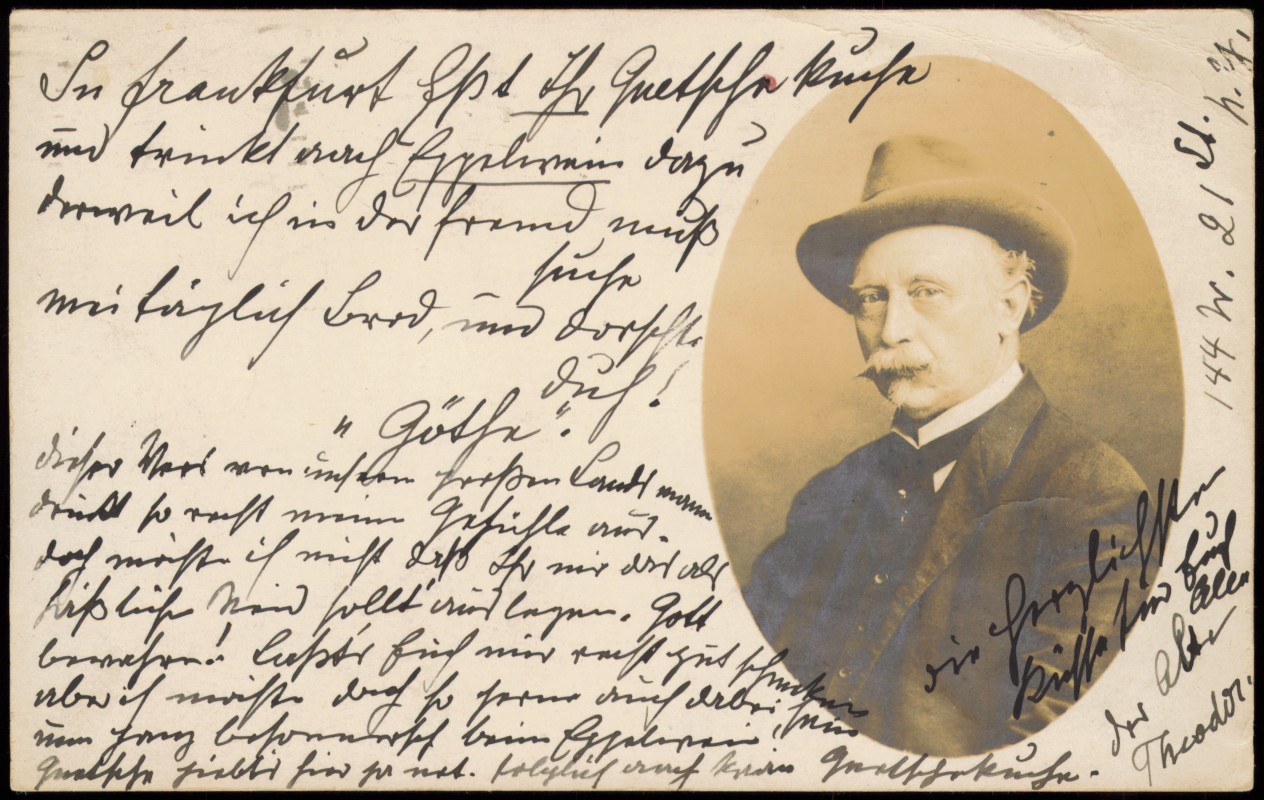 In Frankfurt Eßt Ihr Quetschekuche
und trinkt aach Eppelwein dazu
derweil ich in der Fremd muß
suche
mei täglich Brod, und dorschte
duh!
"Göthe".
dieser Vers von unserm großen Landsmann
drückt so recht meine Gefühle aus.
doch möchte ich nicht daß Ihr mir das als
häßliche Neid sollt auslegen. Gott
bewahre! Laßt's Euch nur recht gut schmecken
aber ich möchte doch so gerne auch dabei sein
un ganz besonnersch beim Eppelwein,
Quetsche giebt's hier ja net. folglich aach kaan Quetschekuche.
die herzlichsten
Küsse für Euch
Alle
der Alte
Theodor.
144 W. 21 St. N.Y.